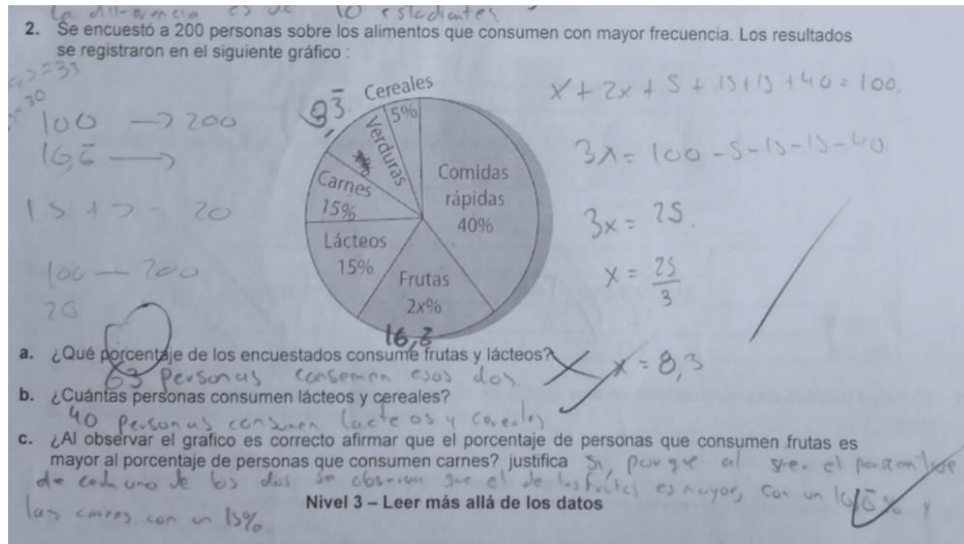 la diferencia es de 10 estudiantes
2. Se encuestó a 200 personas sobre los alimentos que consumen con mayor frecuencia. Los resultados
se registraron en el siguiente gráfico :
=33
30
100 → 200
16,6 →
15 + 5 = 20
100 — 200
20
8,3
Cereales
5%
Verduras
Carnes
15%
Lácteos
15%
Frutas
2x%
16,6
Comidas
rápidas
40%
x + 2x + 5 + 15 + 15 + 40 = 100.
3x = 100 - 5 - 15 - 15 - 40
3x = 25.
x = 25
3
x = 8,3
a. ¿Qué porcentaje de los encuestados consume frutas y lácteos?
63 personas consemen esos dos.
b. ¿Cuántas personas consumen lácteos y cereales?
40 personas consumen lacteos y cereales
c. ¿Al observar el grafico es correcto afirmar que el porcentaje de personas que consumen frutas es
mayor al porcentaje de personas que consumen carnes? justifica Si, porque al el
de cada uno de los dos se observa que el de las frutas es mayor, con un 16,6% y
las carnes con un 15%
Nivel 3 – Leer más allá de los datos